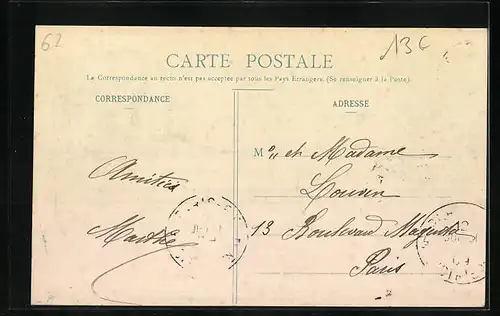 62
13€
CARTE POSTALE
La Correspondance au recto n'est pas acceptée par tous les Pays Etrangers. (Se renseigner à la Poste).
CORRESPONDANCE
ADRESSE
M et Madame
Amitiés
13 Boulevard Magenta
Marthe
Paris